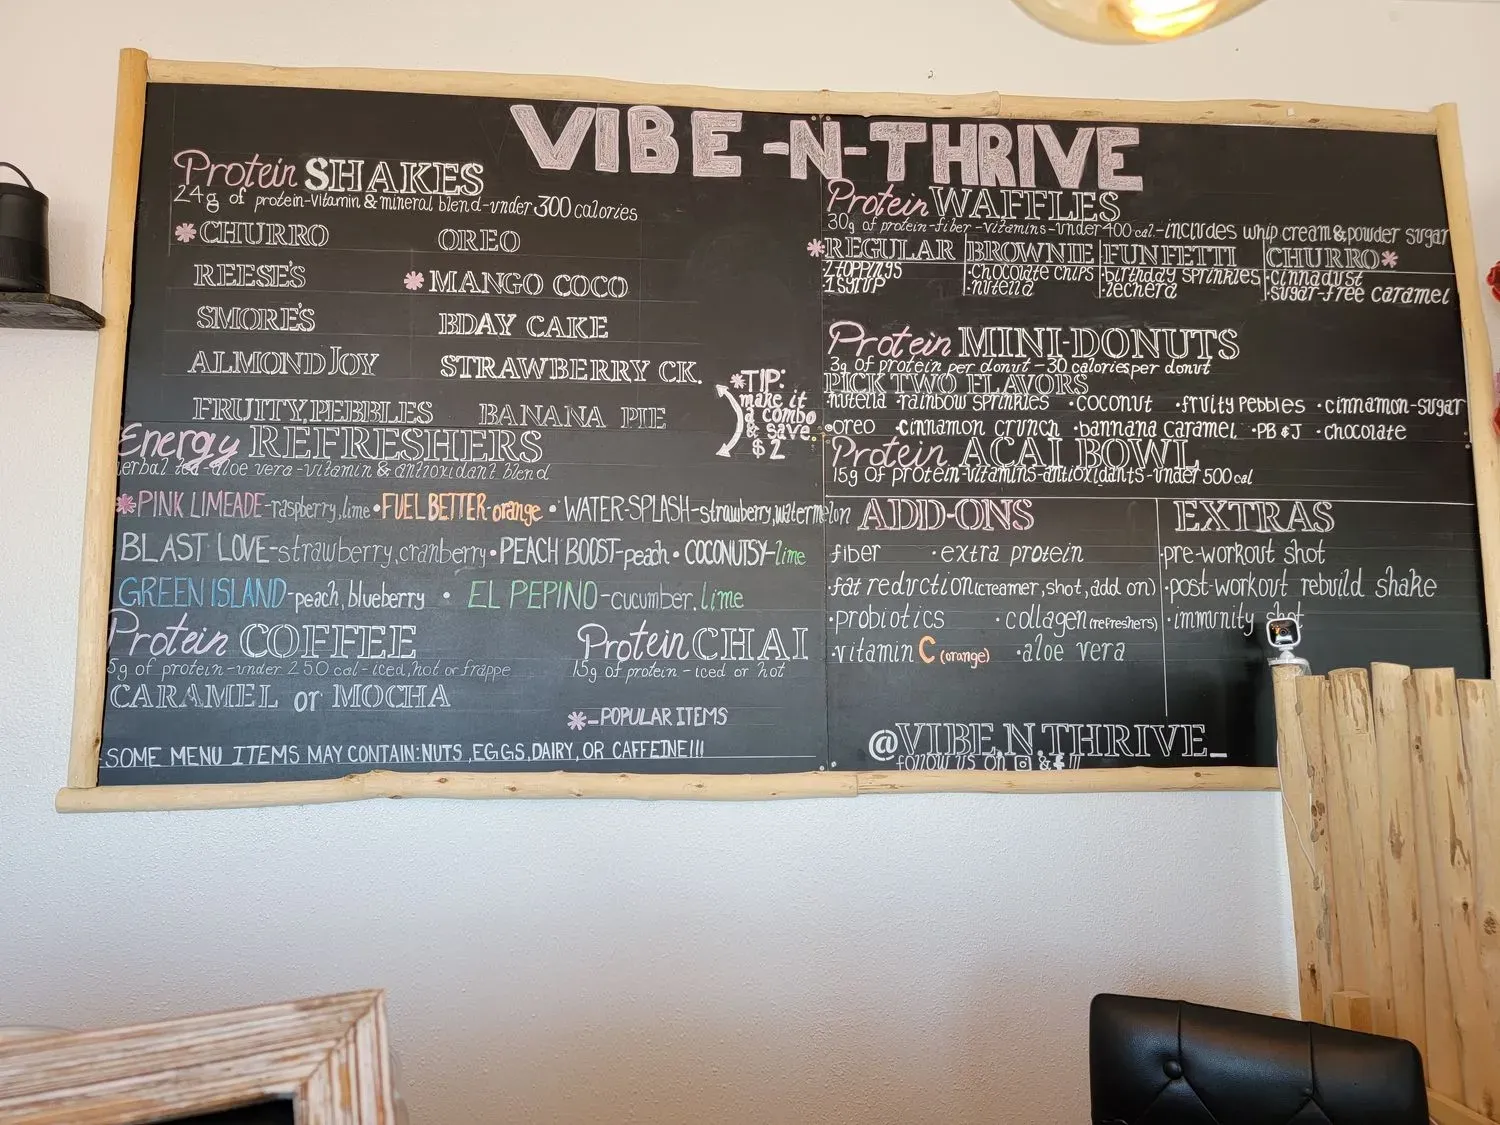 VIBE-N-THRIVE
Protein SHAKES
24g of protein-vitamin & mineral blend-under 300 calories
*CHURRO OREO
REESE'S *MANGO COCO
SMORE'S BDAY CAKE
ALMOND JOY STRAWBERRY CK.
FRUITY PEBBLES BANANA PIE
*TIP:
make it
a combo
& save
$2
Energy REFRESHERS
erbal tea-aloe vera-vitamin & antioxidant blend
*PINK LIMEADE-raspberry, lime•FUEL BETTER-orange •WATER-SPLASH-strawberry, watermelon
BLAST LOVE-strawberry, cranberry•PEACH BOOST-peach•COCONUTSY-lime
GREEN ISLAND-peach, blueberry • EL PEPINO-cucumber, lime
Protein COFFEE
5g of protein-under 250 cal-iced, hot or frappe
CARAMEL or MOCHA
Protein CHAI
15g of protein-iced or hot
*-POPULAR ITEMS
SOME MENU ITEMS MAY CONTAIN: NUTS, EGGS, DAIRY, OR CAFFEINE!!!
Protein WAFFLES
30g of protein-fiber-vitamins-under 400 cal-includes whip cream & powder sugar
*REGULAR BROWNIE FUNFETTI CHURRO*
2 TOPPINGS •chocolate chips •birthday sprinkles •cinnadust
1 SYRUP •nutella •lechera •sugar-free caramel
Protein MINI-DONUTS
3g of protein per donut-30 calories per donut
PICK TWO FLAVORS
•nutella •rainbow sprinkles •coconut •fruity pebbles •cinnamon-sugar
•oreo •cinnamon crunch •bannana caramel •PB & J •chocolate
Protein ACAI BOWL
15g of protein-vitamins-antioxidants-under 500 cal
ADD-ONS
fiber •extra protein
•fat reduction (creamer, shot, add on)
•probiotics •collagen (refreshers)
•vitamin C (orange) •aloe vera
EXTRAS
•pre-workout shot
•post-workout rebuild shake
•immunity shot
@VIBE.N.THRIVE_
follow us on & !!!